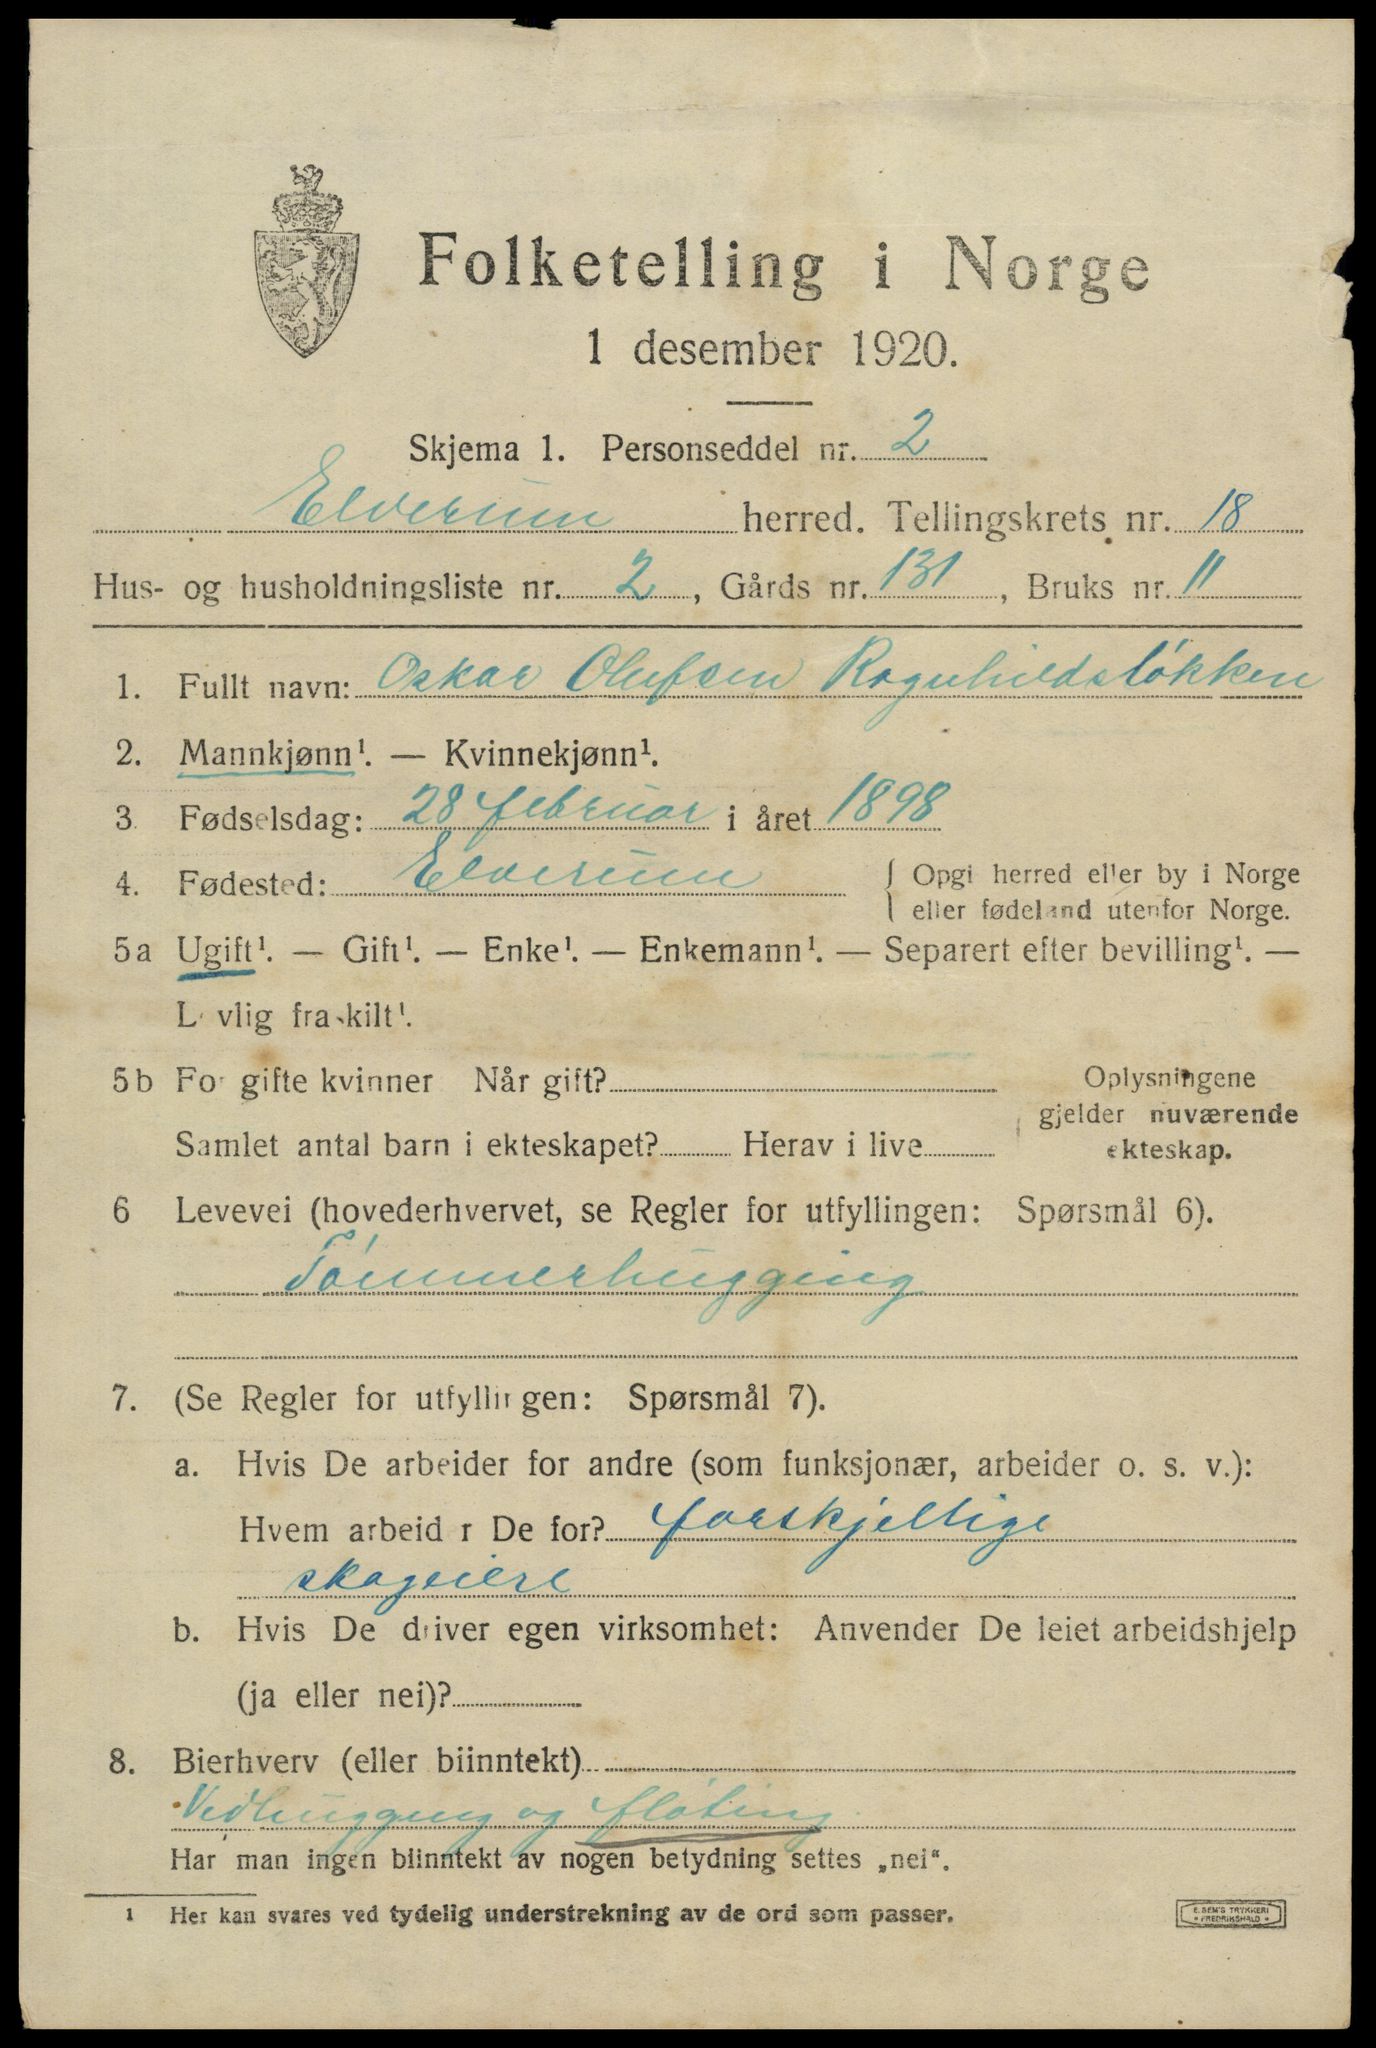 Folketelling i Norge
1 desember 1920.
Skjema 1. Personseddel nr. 2
Elverum herred. Tellingskrets nr. 18
Hus- og husholdningsliste nr. 2, Gårds nr. 131, Bruks nr. 11
1. Fullt navn: Oskar Olufsen Ragnhildsløkken
2. Mannkjønn¹. — Kvinnekjønn¹.
3 Fødselsdag: 28 februar i året 1898
4. Fødested: Elverum { Opgi herred eller by i Norge
eller fødeland utenfor Norge.
5a Ugift¹. — Gift¹. — Enke¹. — Enkemann¹. — Separert efter bevilling¹. —
Lovlig fraskilt¹.
5b For gifte kvinner Når gift? Oplysningene
gjelder nuværende
Samlet antal barn i ekteskapet? Herav i live ekteskap.
6 Levevei (hovederhvervet, se Regler for utfyllingen: Spørsmål 6).
Tømmerhugging
7. (Se Regler for utfyllingen: Spørsmål 7).
a. Hvis De arbeider for andre (som funksjonær, arbeider o. s. v.):
Hvem arbeider De for? forskjellige
skogeiere
b. Hvis De driver egen virksomhet: Anvender De leiet arbeidshjelp
(ja eller nei)?
8. Bierhverv (eller biinntekt)
Vedhugging og fløting
Har man ingen biinntekt av nogen betydning settes „nei“.
1 Her kan svares ved tydelig understrekning av de ord som passer.
E. SEM'S TRYKKERI
FREDRIKSHALD